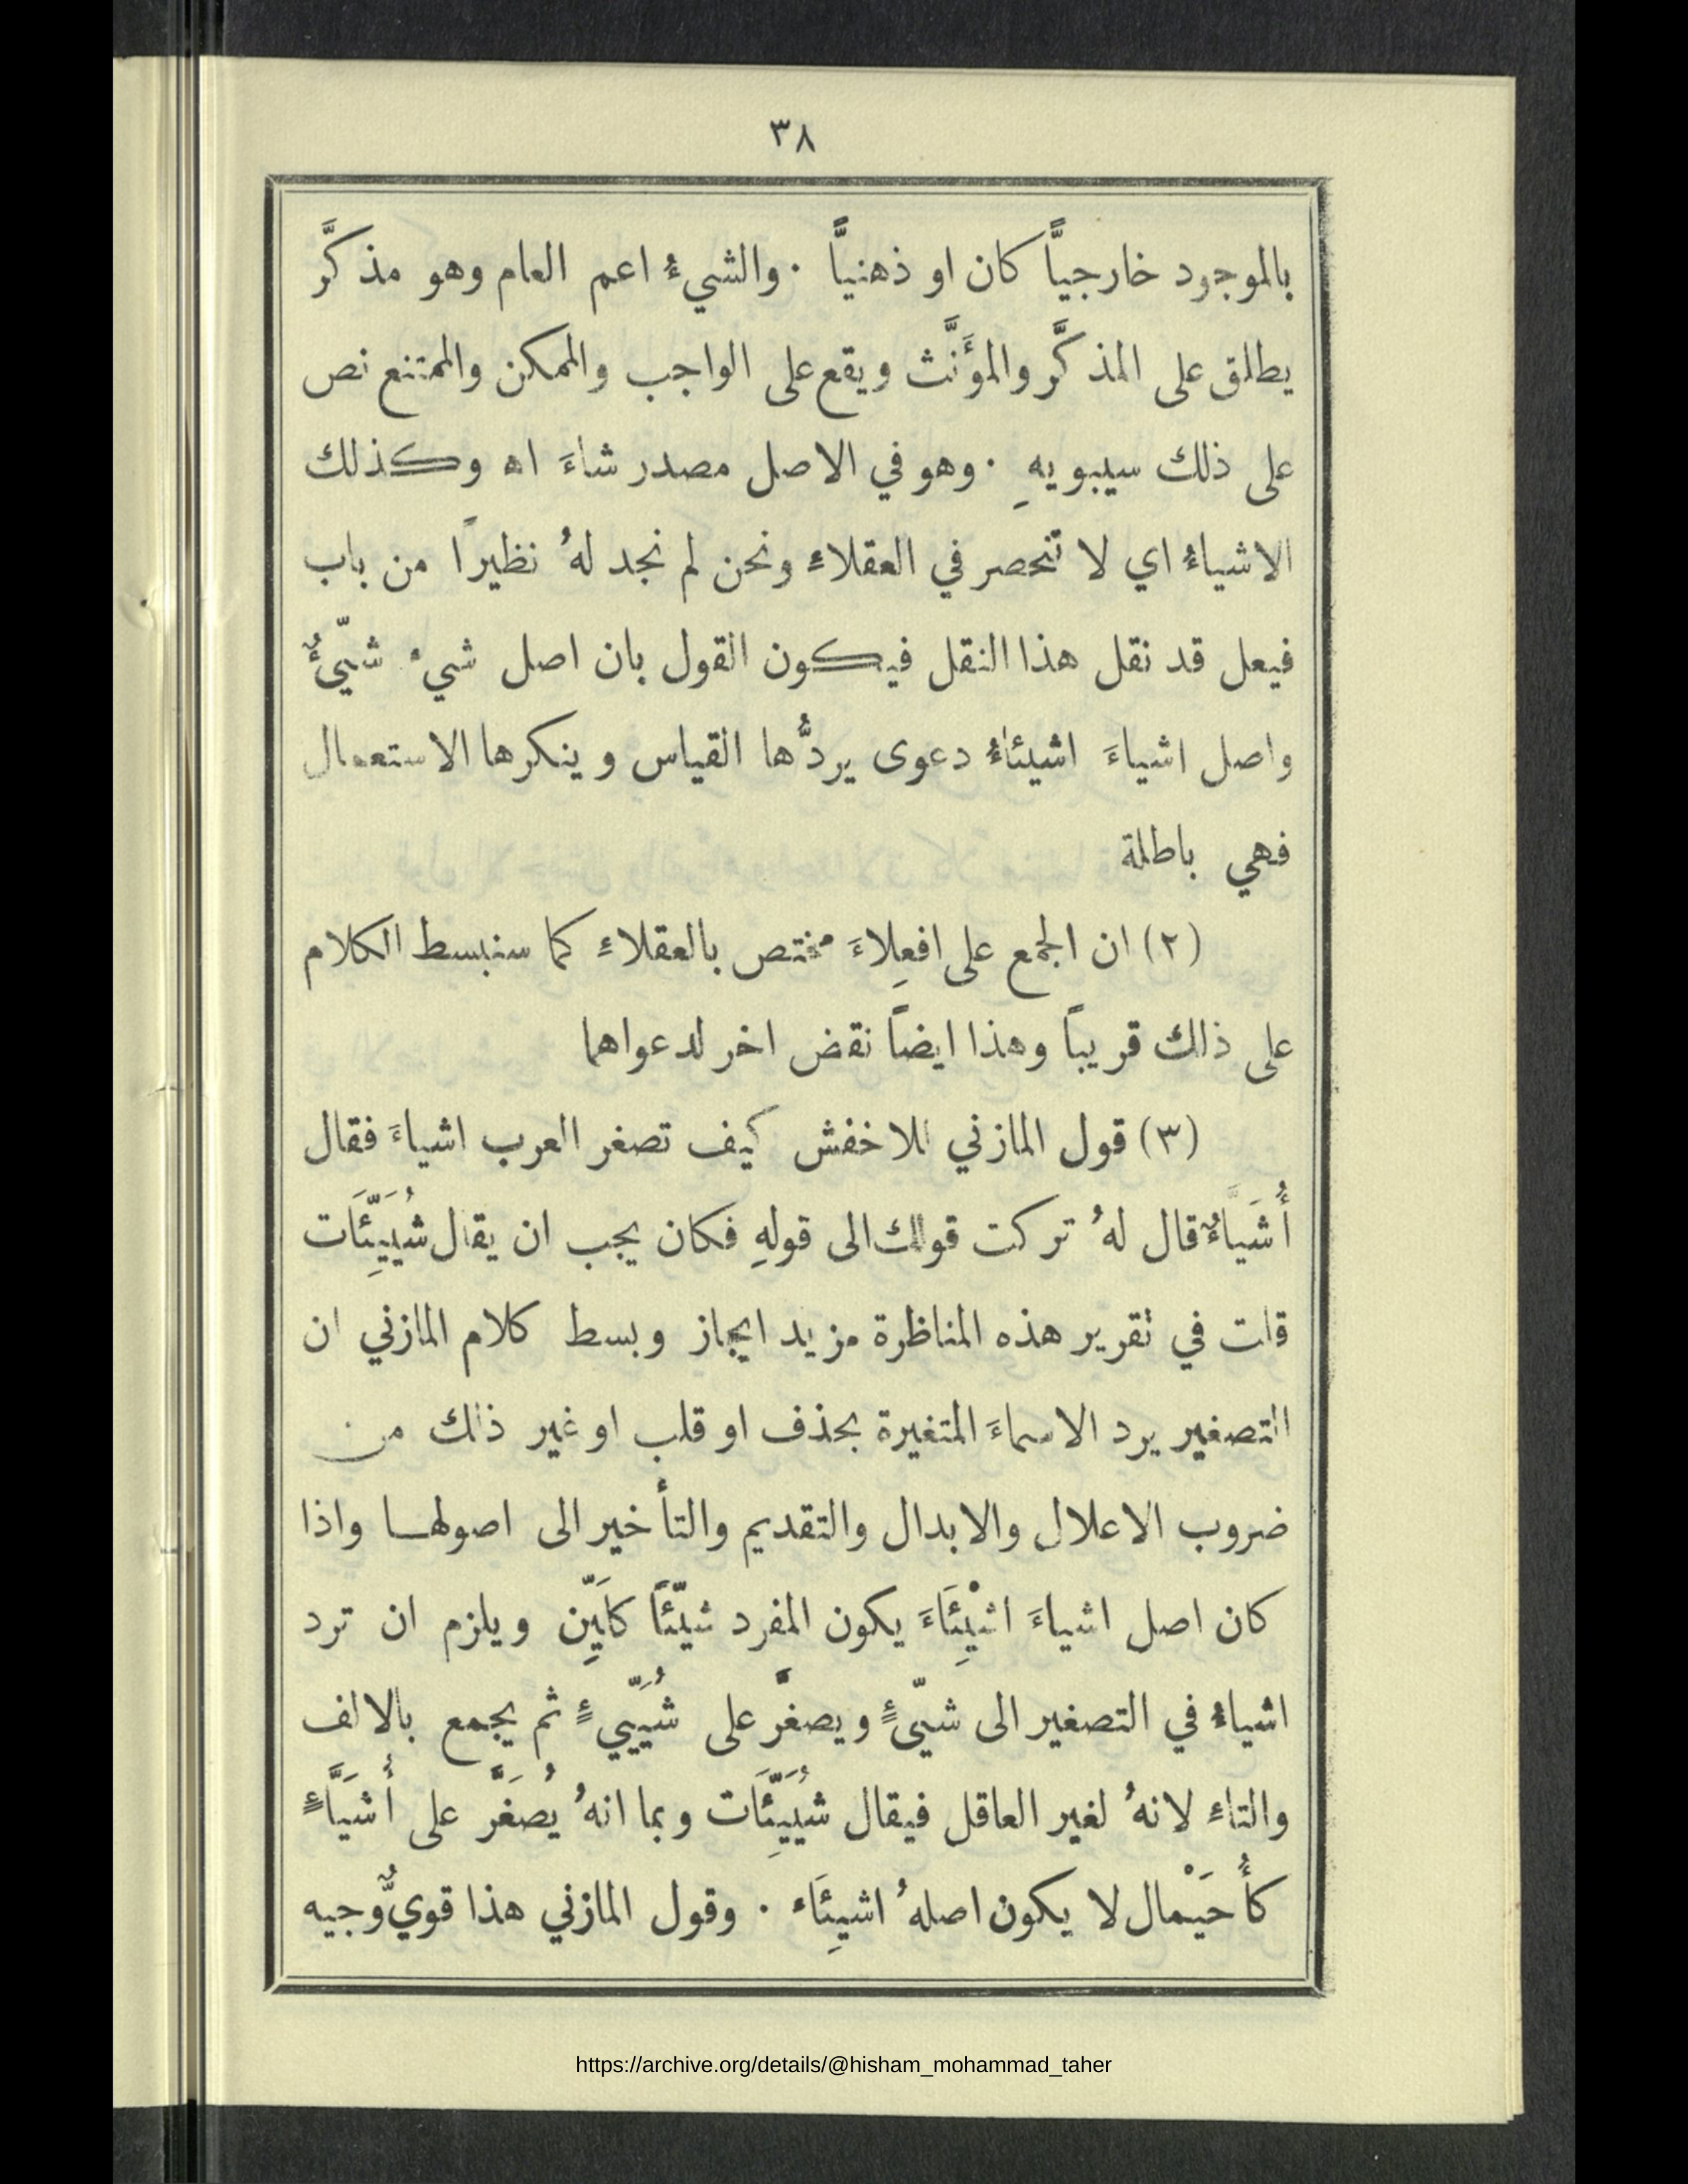 ٣٨
بالموجود خارجيًّا كان او ذهنيًّا . والشيءُ اعم العام وهو مذكَّر
يطلق على المذكَّر والمؤَنَّث ويقع على الواجب والممكن والممتنع نص
على ذلك سيبويهِ . وهو في الاصل مصدر شاءَ اه وكذلك
الاشياءُ اي لا تنحصر في العقلاءِ ونحن لم نجد لهُ نظيرًا من باب
فيعل قد نقل هذا النقل فيكون القول بان اصل شيء شيّئٌ
واصل اشياءَ اشيئاءُ دعوى يردُّها القياس وينكرها الاستعمال
فهي باطلة
(٢) ان الجمع على افعِلاءَ مختص بالعقلاءِ كما سنبسط الكلام
على ذلك قريبًا وهذا ايضًا نقض اخر لدعواهما
(٣) قول المازني للاخفش كيف تصغر العرب اشياءَ فقال
أُشَيَّاءٌ قال لهُ تركت قولك الى قولهِ فكان يجب ان يقال شُيَيِّئَات
قلت في تقرير هذه المناظرة مزيد ايجاز وبسط كلام المازني ان
التصغير يرد الاسماءَ المتغيرة بحذف او قلب او غير ذلك من
ضروب الاعلال والابدال والتقديم والتأخير الى اصولها واذا
كان اصل اشياءَ اشْيِئَاءَ يكون المفرد شيّئًا كلَيِّن ويلزم ان ترد
اشياءُ في التصغير الى شيّئٍ ويصغَّر على شُيَيِّيءٍ ثم يجمع بالالف
والتاءِ لانهُ لغير العاقل فيقال شُيَيِّئَات وبما انهُ يُصَغَّر على أُشَيَّاءٍ
كأُحَيْمال لا يكون اصلهُ اشيِئَاء . وقول المازني هذا قويٌّ وجيه
https://archive.org/details/@hisham_mohammad_taher